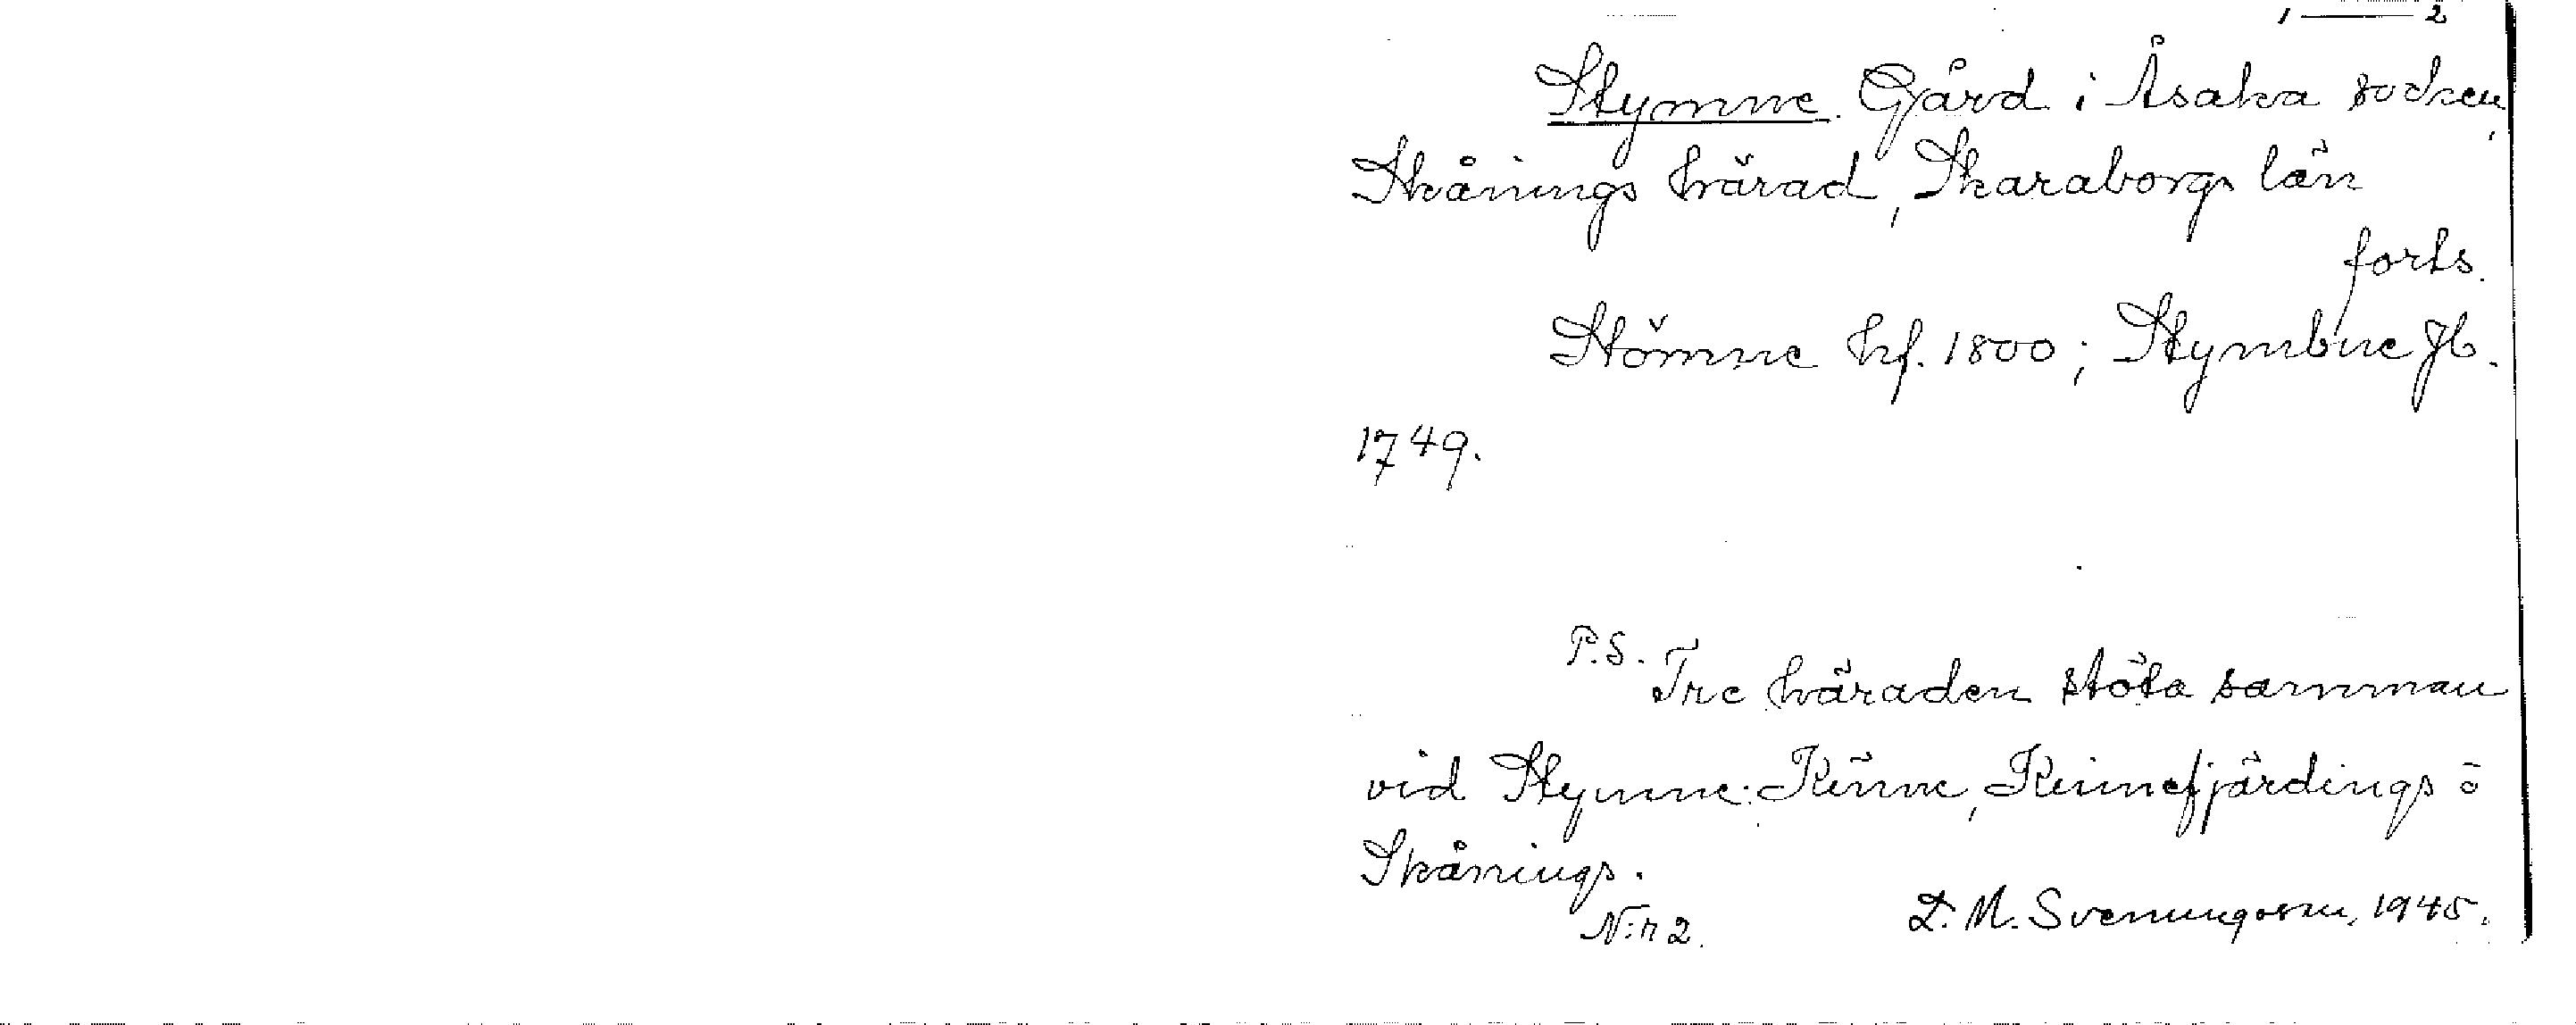 1 — 2
Stymne. Gård i Åsaka socken,
Skånings härad, Skaraborgs län
forts.
Stömne hf. 1800; Stymbne Jb.
1749.
P.S. Tre häraden stöta samman
vid Stymne: Kinne, Kinnefjärdings o
Skånings.
N:r 2. D. M. Svenungsson, 1945.